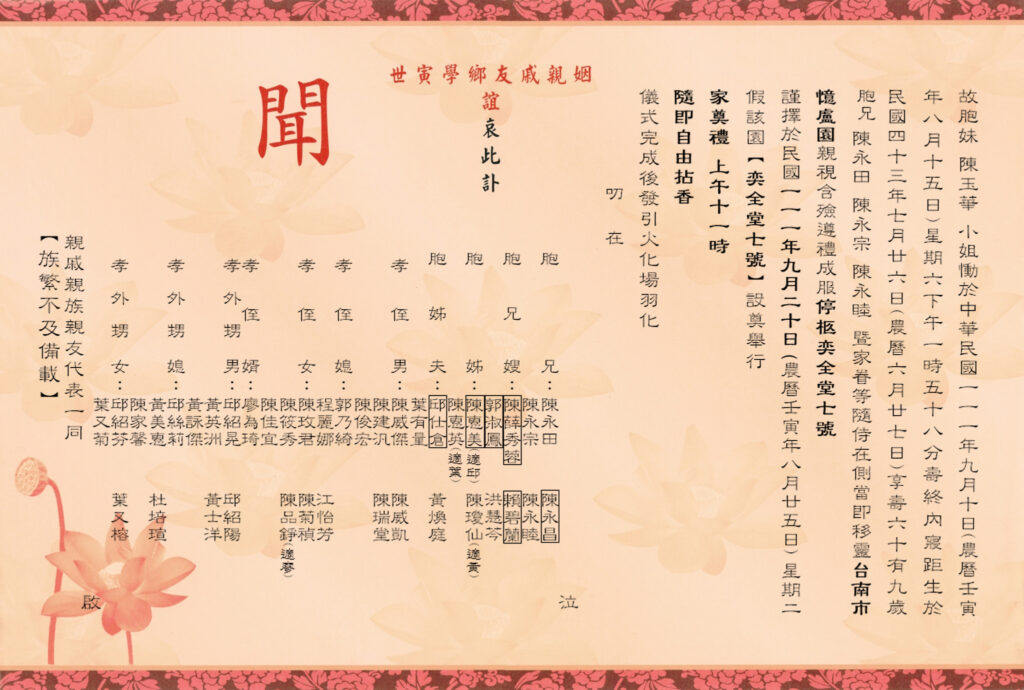 故胞妹 陳玉華 小姐慟於中華民國一一一年九月十日(農曆壬寅
年八月十五日)星期六下午一時五十八分壽終內寢距生於
民國四十三年七月廿六日(農曆六月廿七日)享壽六十有九歲
胞兄 陳永田 陳永宗 陳永睦 暨家眷等隨侍在側當即移靈台南市
憶盧園親視含殮遵禮成服停柩奕全堂七號
謹擇於民國一一一年九月二十日(農曆壬寅年八月廿五日)星期二
假該園【奕全堂七號】設奠舉行
家奠禮 上午十一時
隨即自由拈香
儀式完成後發引火化場羽化
叨在
姻親戚友鄉學寅世
誼哀此訃
聞
胞兄:陳永田 陳永昌
陳永宗 陳永睦
胞兄嫂:陳薛秀蓉 賴碧蘭
郭淑鳳 洪慧芩
胞姊:陳惠美(適邱) 陳瓊仙(適黃)
陳惠英(適葉)
胞姊夫:邱仕倉 黃煥庭
葉有量
孝侄男:陳威傑 陳威凱
陳建汎 陳瑞堂
陳俊宏
孝侄媳:郭乃綺
程麗娜 江怡芳
孝侄女:陳玫君 陳菊禎
陳筱秀 陳品錚(適廖)
陳佳宜
孝侄婿:廖為琦
孝外甥男:邱紹晃 邱紹陽
黃英洲 黃士洋
黃詠傑
孝外甥媳:邱絲莉
黃美惠 杜培瑄
陳家馨
孝外甥女:邱紹芬 葉又榕
葉又菊
泣
啟
親戚親族親友代表一同
【族繁不及備載】